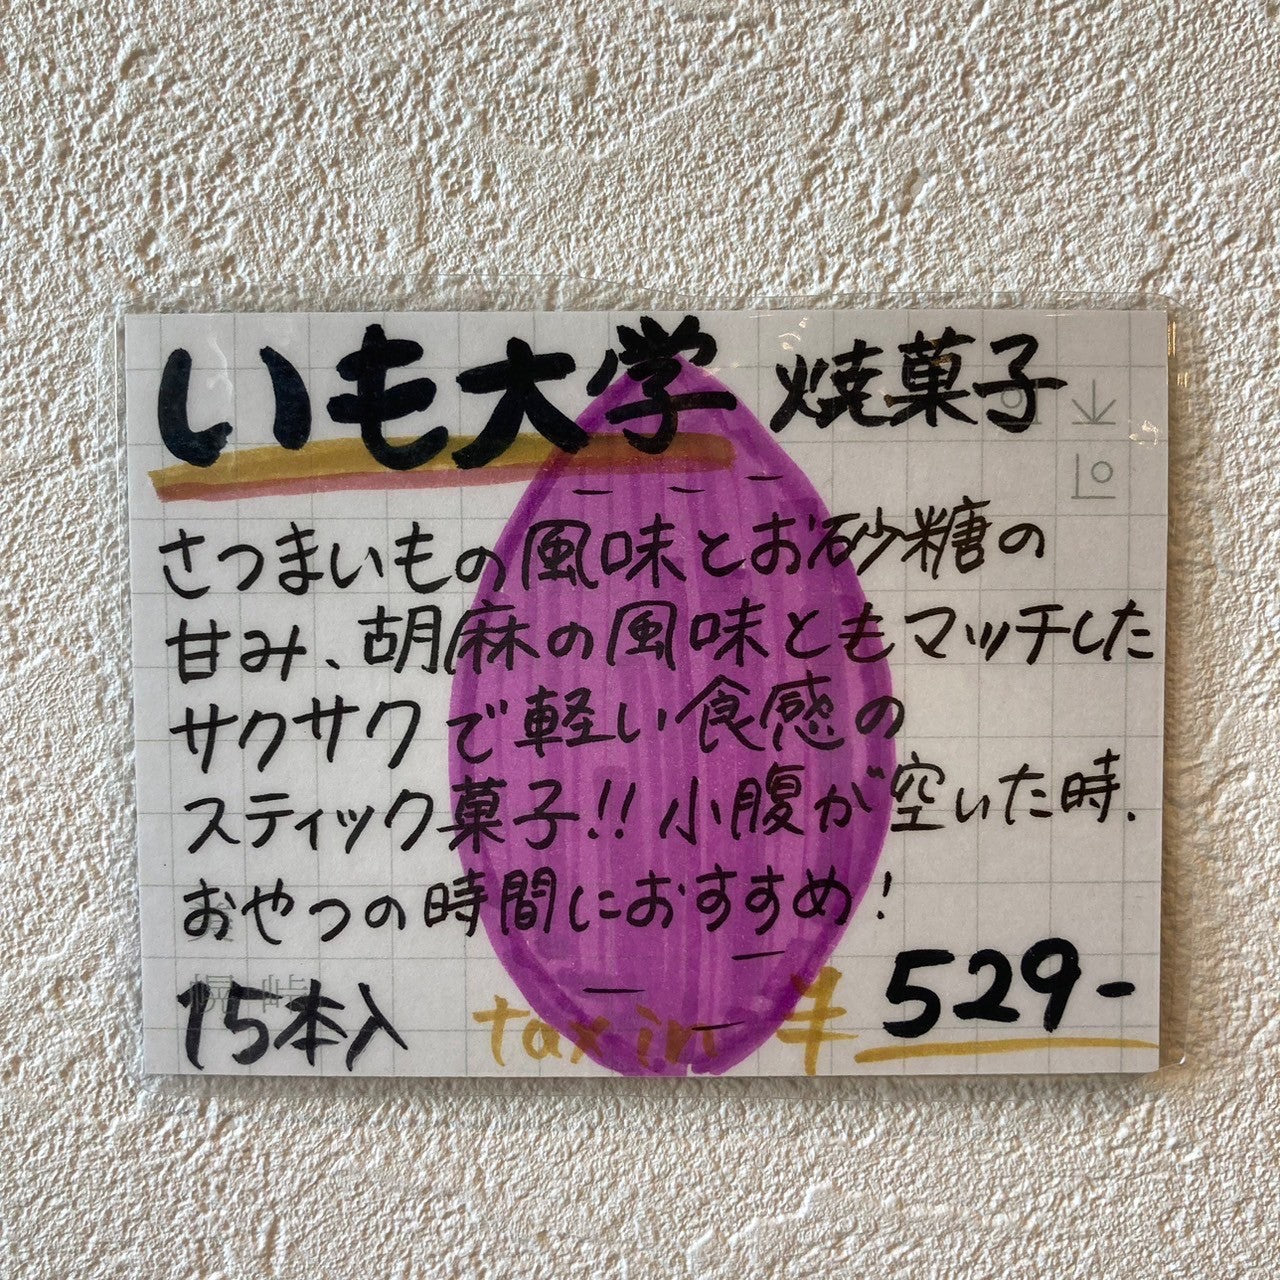 いも大学 焼菓子
さつまいもの風味とお砂糖の
甘み、胡麻の風味ともマッチした
サクサクで軽い食感の
スティック菓子!! 小腹が空いた時、
おやつの時間におすすめ!
15本入 tax in ¥ 529-